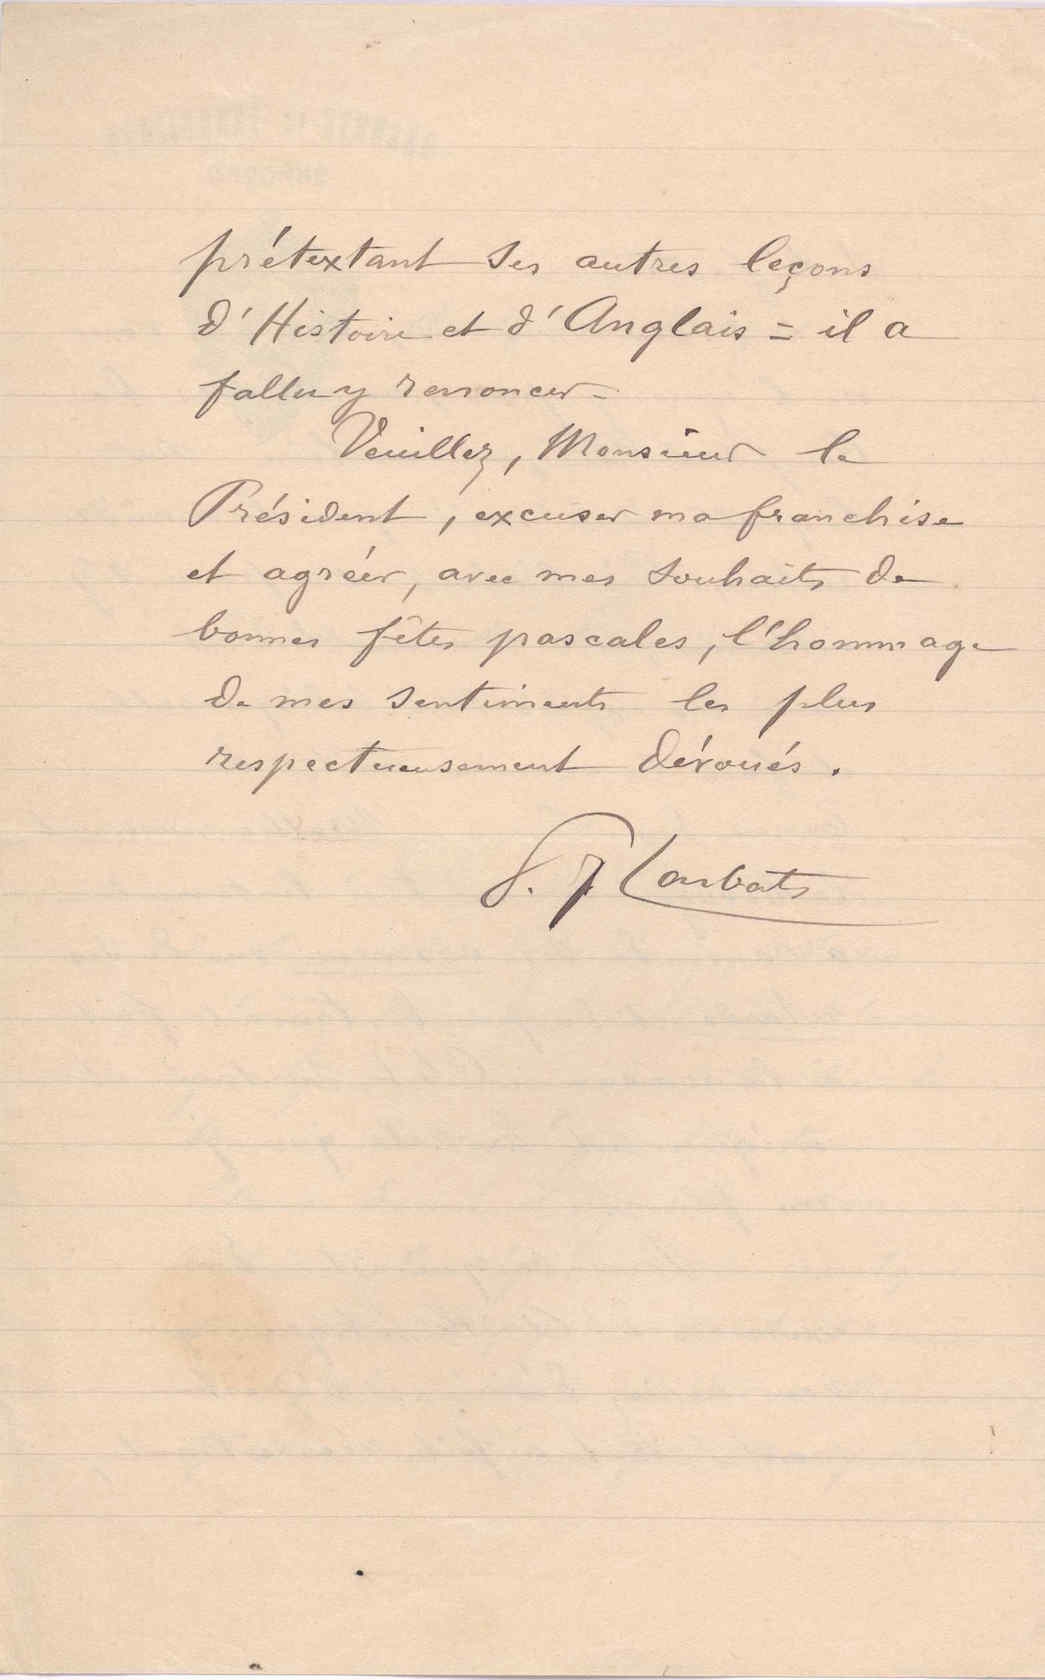 prétextant ses autres leçons
d'Histoire et d'Anglais = il a
fallu y renoncer –
Veuillez, Monsieur le
Président, excuser ma franchise
et agréer, avec mes souhaits de
bonnes fêtes pascales, l'hommage
de mes sentiments les plus
respectueusement dévoués.